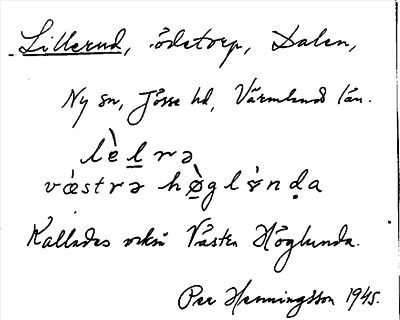 Lillerud, ödetorp, Dalen,
Ny sn, Jösse hd, Värmlands län.
lèl̲rə
væ̀strə hø̲̀glɞnḍa
Kallades också Västra Höglunda.
Per Henningsson 1945.